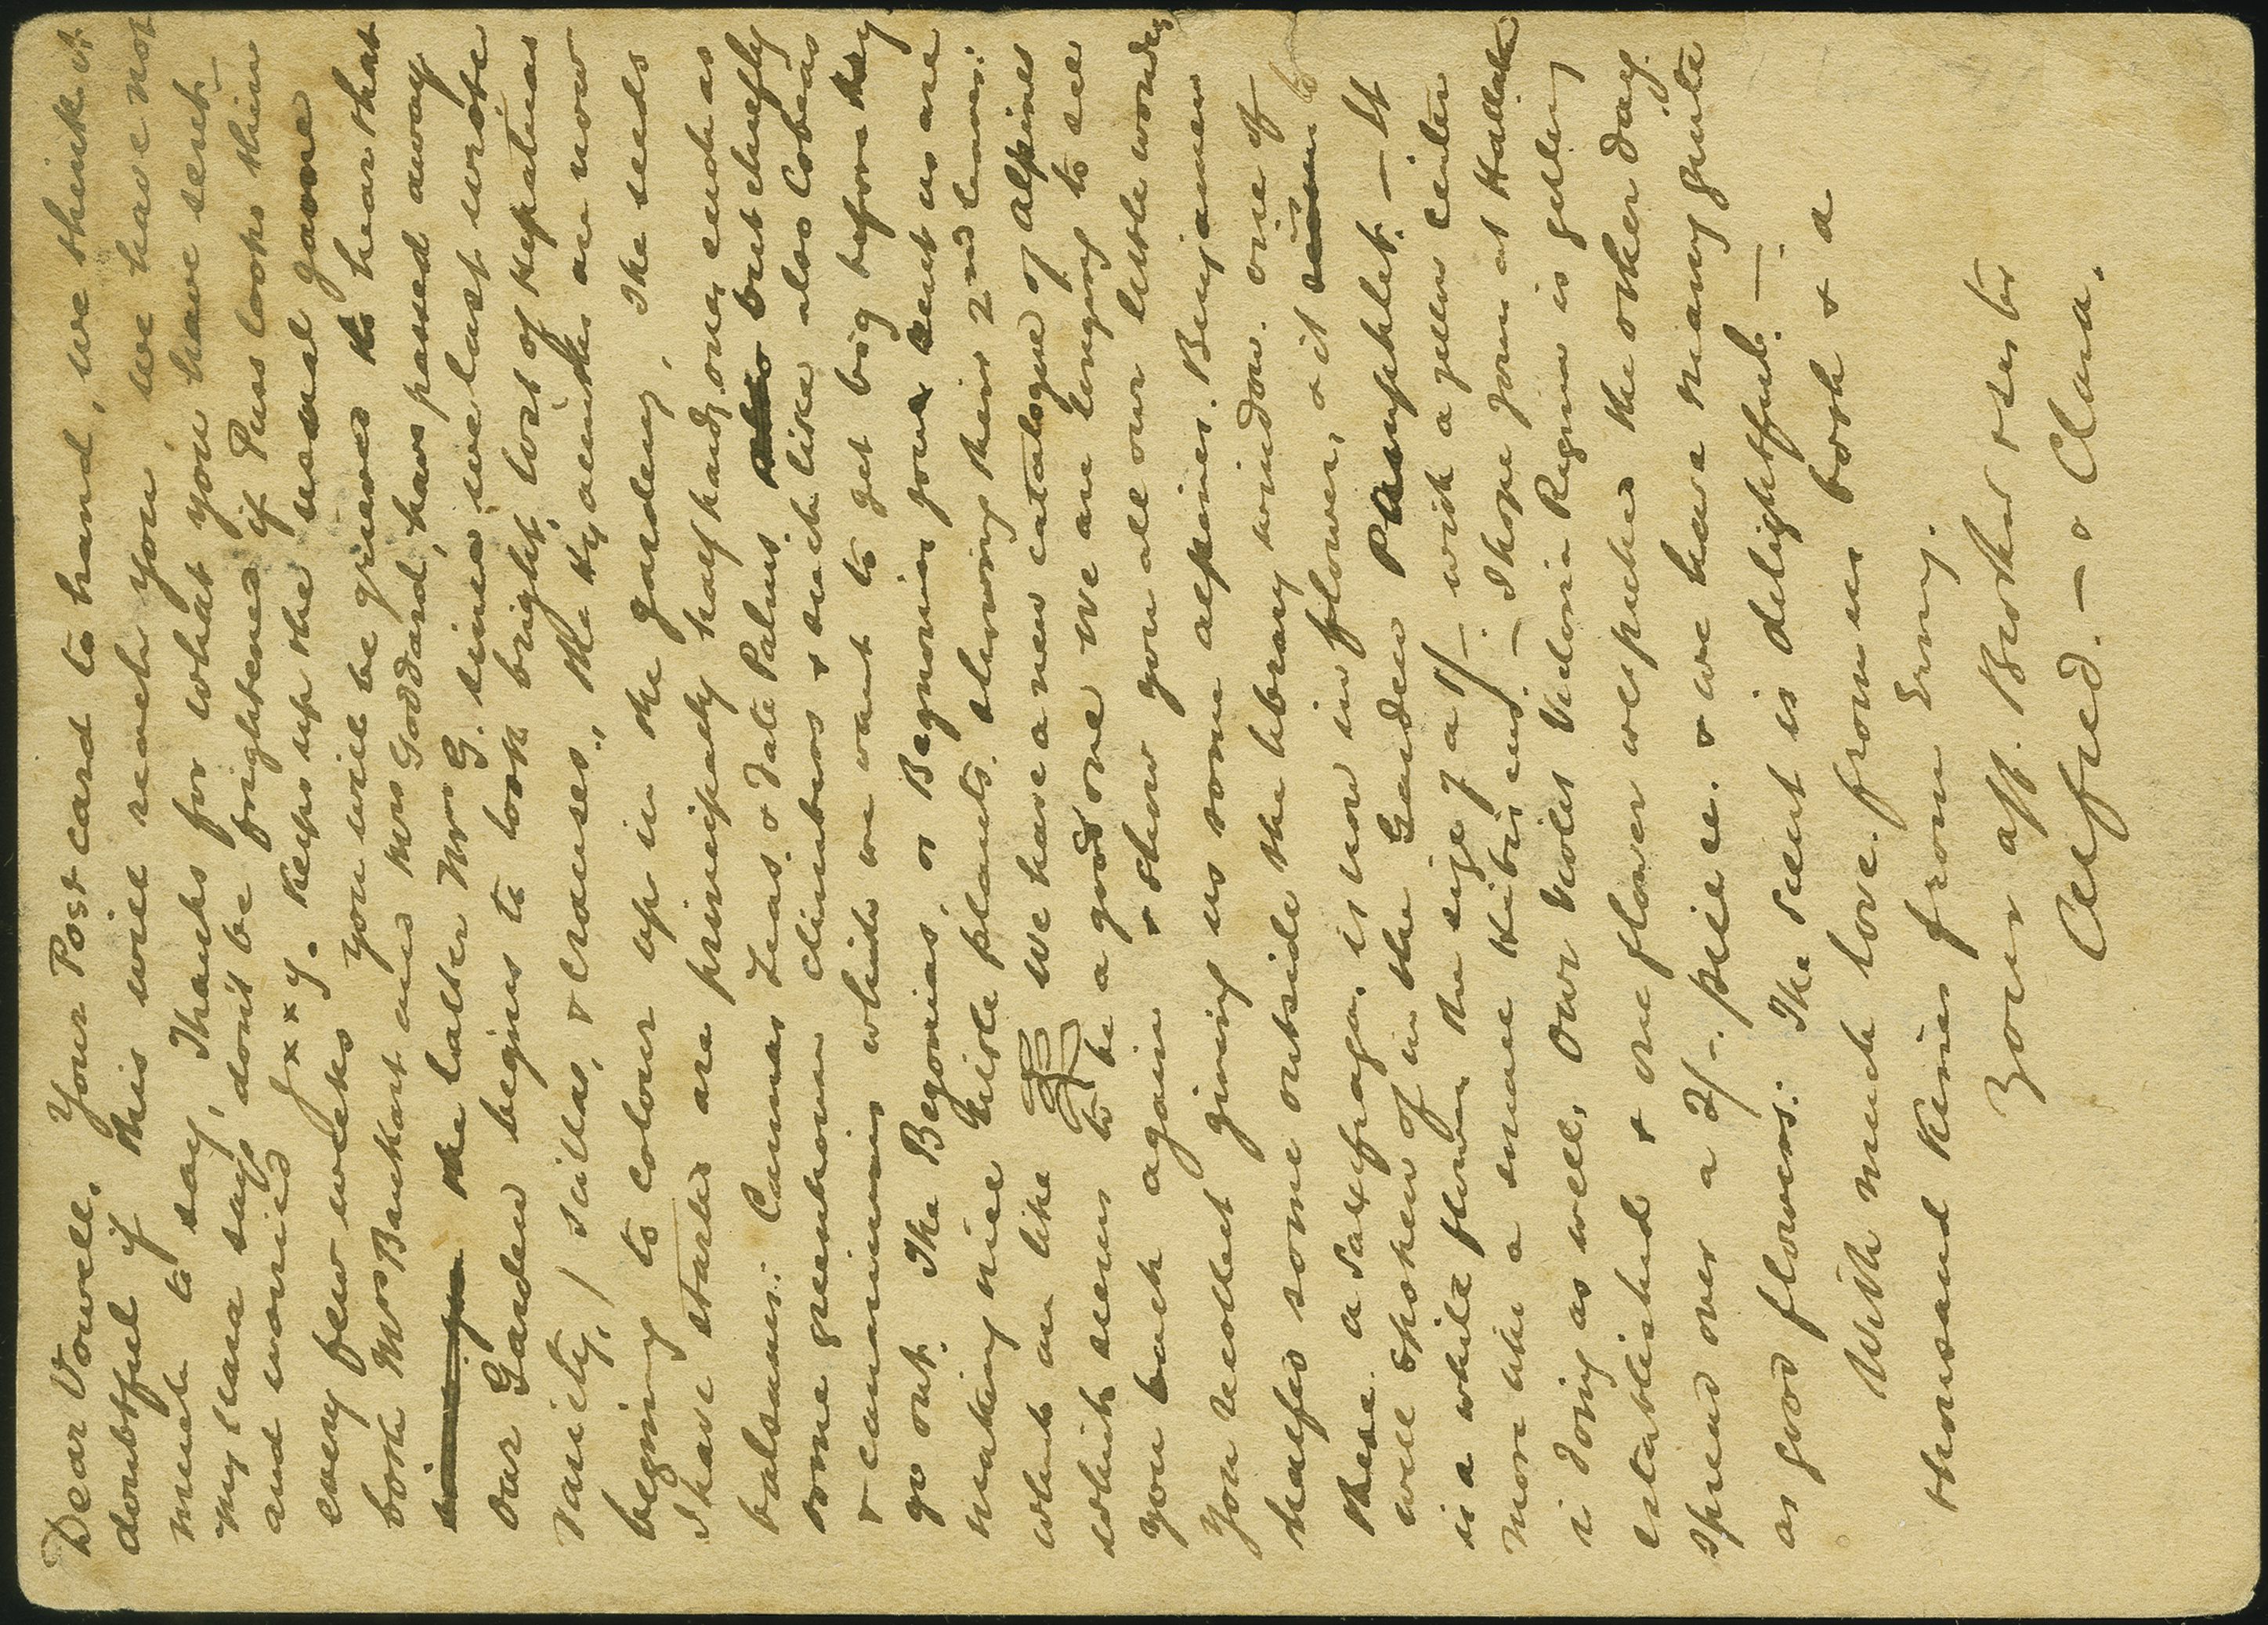 Dear Vowell, Your Post card to hand, we think it
doubtful if this will reach you, we have not
much to say, Thanks for what you have sent
My Clara says don't be frightened if Puss looks thin
and worried J x x y. keeps up the usual game
every few weeks you will be grieved to hear that
both Mrs Bankart and Mrs Goddard, have passed away
the latter Mrs G. since we last wrote
our Garden begins to look bright, lots of Hepaticas
variety, / scillas, & crocuses, the Hyacinths are now
begining to colour up in the garden, the seeds
I have started are principally half hardy ones such as
balsams. Cannas Zeas. & Date Palms. but chiefly
some greenhouse climbers & such like also Cobeas
& cannas which we want to get big before they
go out. The Begonias, or Begnonias you sent us are
making nice little plants. showing their 2nd leaves.
which are like we have a new catalogue of alpines
which seems to be a good one we are longing to see
you back again & show you all our little wonders
You recollect giving us some alpines. Benjamen
shelfed some outside the library window. one of
these a Saxifraga, is now in flower, & it is
well spoken of in the Garden Pamphlet. — It
is a white flower the size of a 1/-. with a yellow center
more like a small Hibiscus. — I hope Jom at
is doing as well. Our Violet Victoria Regina is getting
established & one flower we picked the other day.
spread over a 2/-. piece. & we have many quite
as good flowers. The scent is delightful. —
With much love. from us both & a
thousand Kisses from Emy.
Your aff. Brother & sister
Alfred. — & Clara.